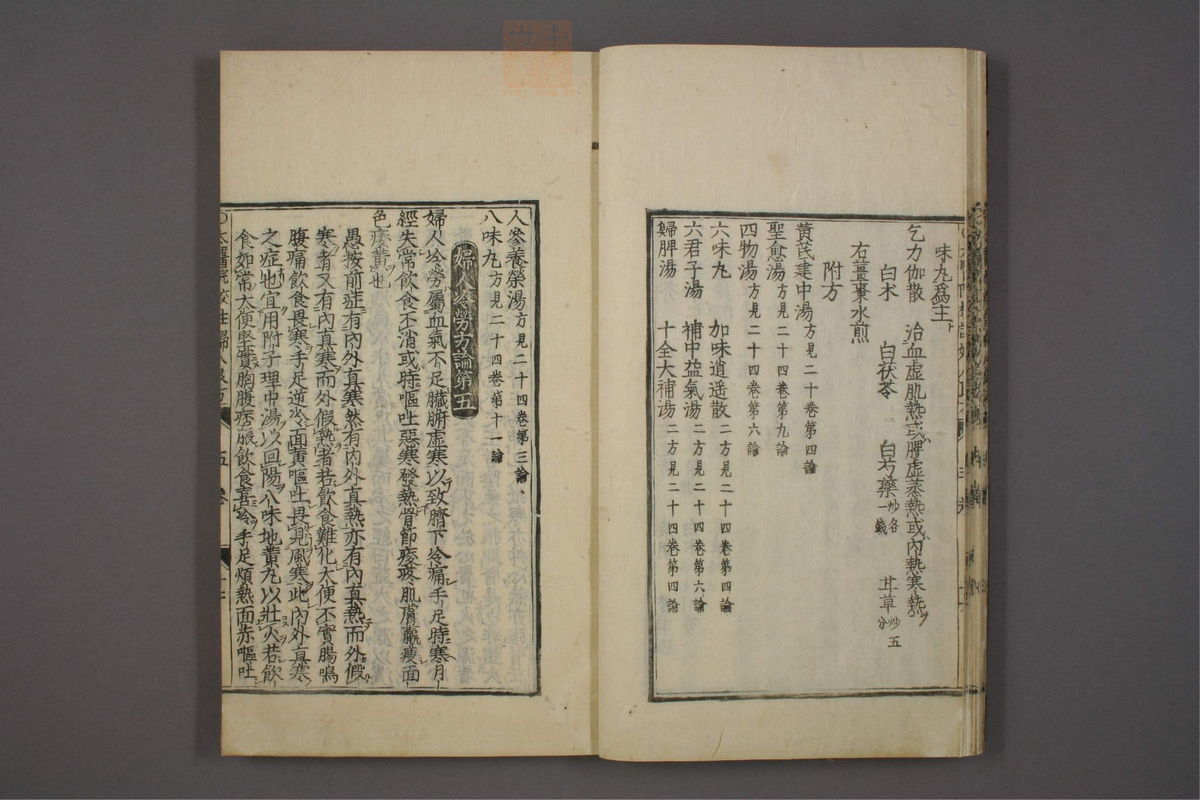 味丸爲主
乞力伽散　治血虛肌熱或脾虛蒸熱或內熱寒熱
白朮　白茯苓　白芍藥炒各一錢　甘草炒五分
右薑棗水煎
附方
黄茋建中湯方見二十卷第四論
聖愈湯方見二十四卷第九論
四物湯方見二十四卷第六論
六味丸　加味逍遥散二方見二十四卷第四論
六君子湯　補中益氣湯二方見二十四卷第六論
歸脾湯　十全大補湯二方見二十四卷第四論
人參養榮湯方見二十四卷第三論
八味丸方見二十四卷第十一論
婦人冷勞方論第五
婦人冷勞屬血氣不足臟腑虛寒以致臍下冷痛手足時寒月
經失常飲食不消或時嘔吐惡寒發熱骨節痠疼肌膚羸瘦面
色痿黄也
愚按前症有內外真寒然有內外真熱亦有內真熱而外假
寒者又有內真寒而外假熱者若飲食難化大便不實腸鳴
腹痛飲食畏寒手足逆冷面黄嘔吐畏見風寒此內外真寒
之症也宜用附子理中湯以回陽八味地黄丸以壯火若飲
食如常大便堅實胸腹痞脹飲食喜冷手足煩熱面赤嘔吐